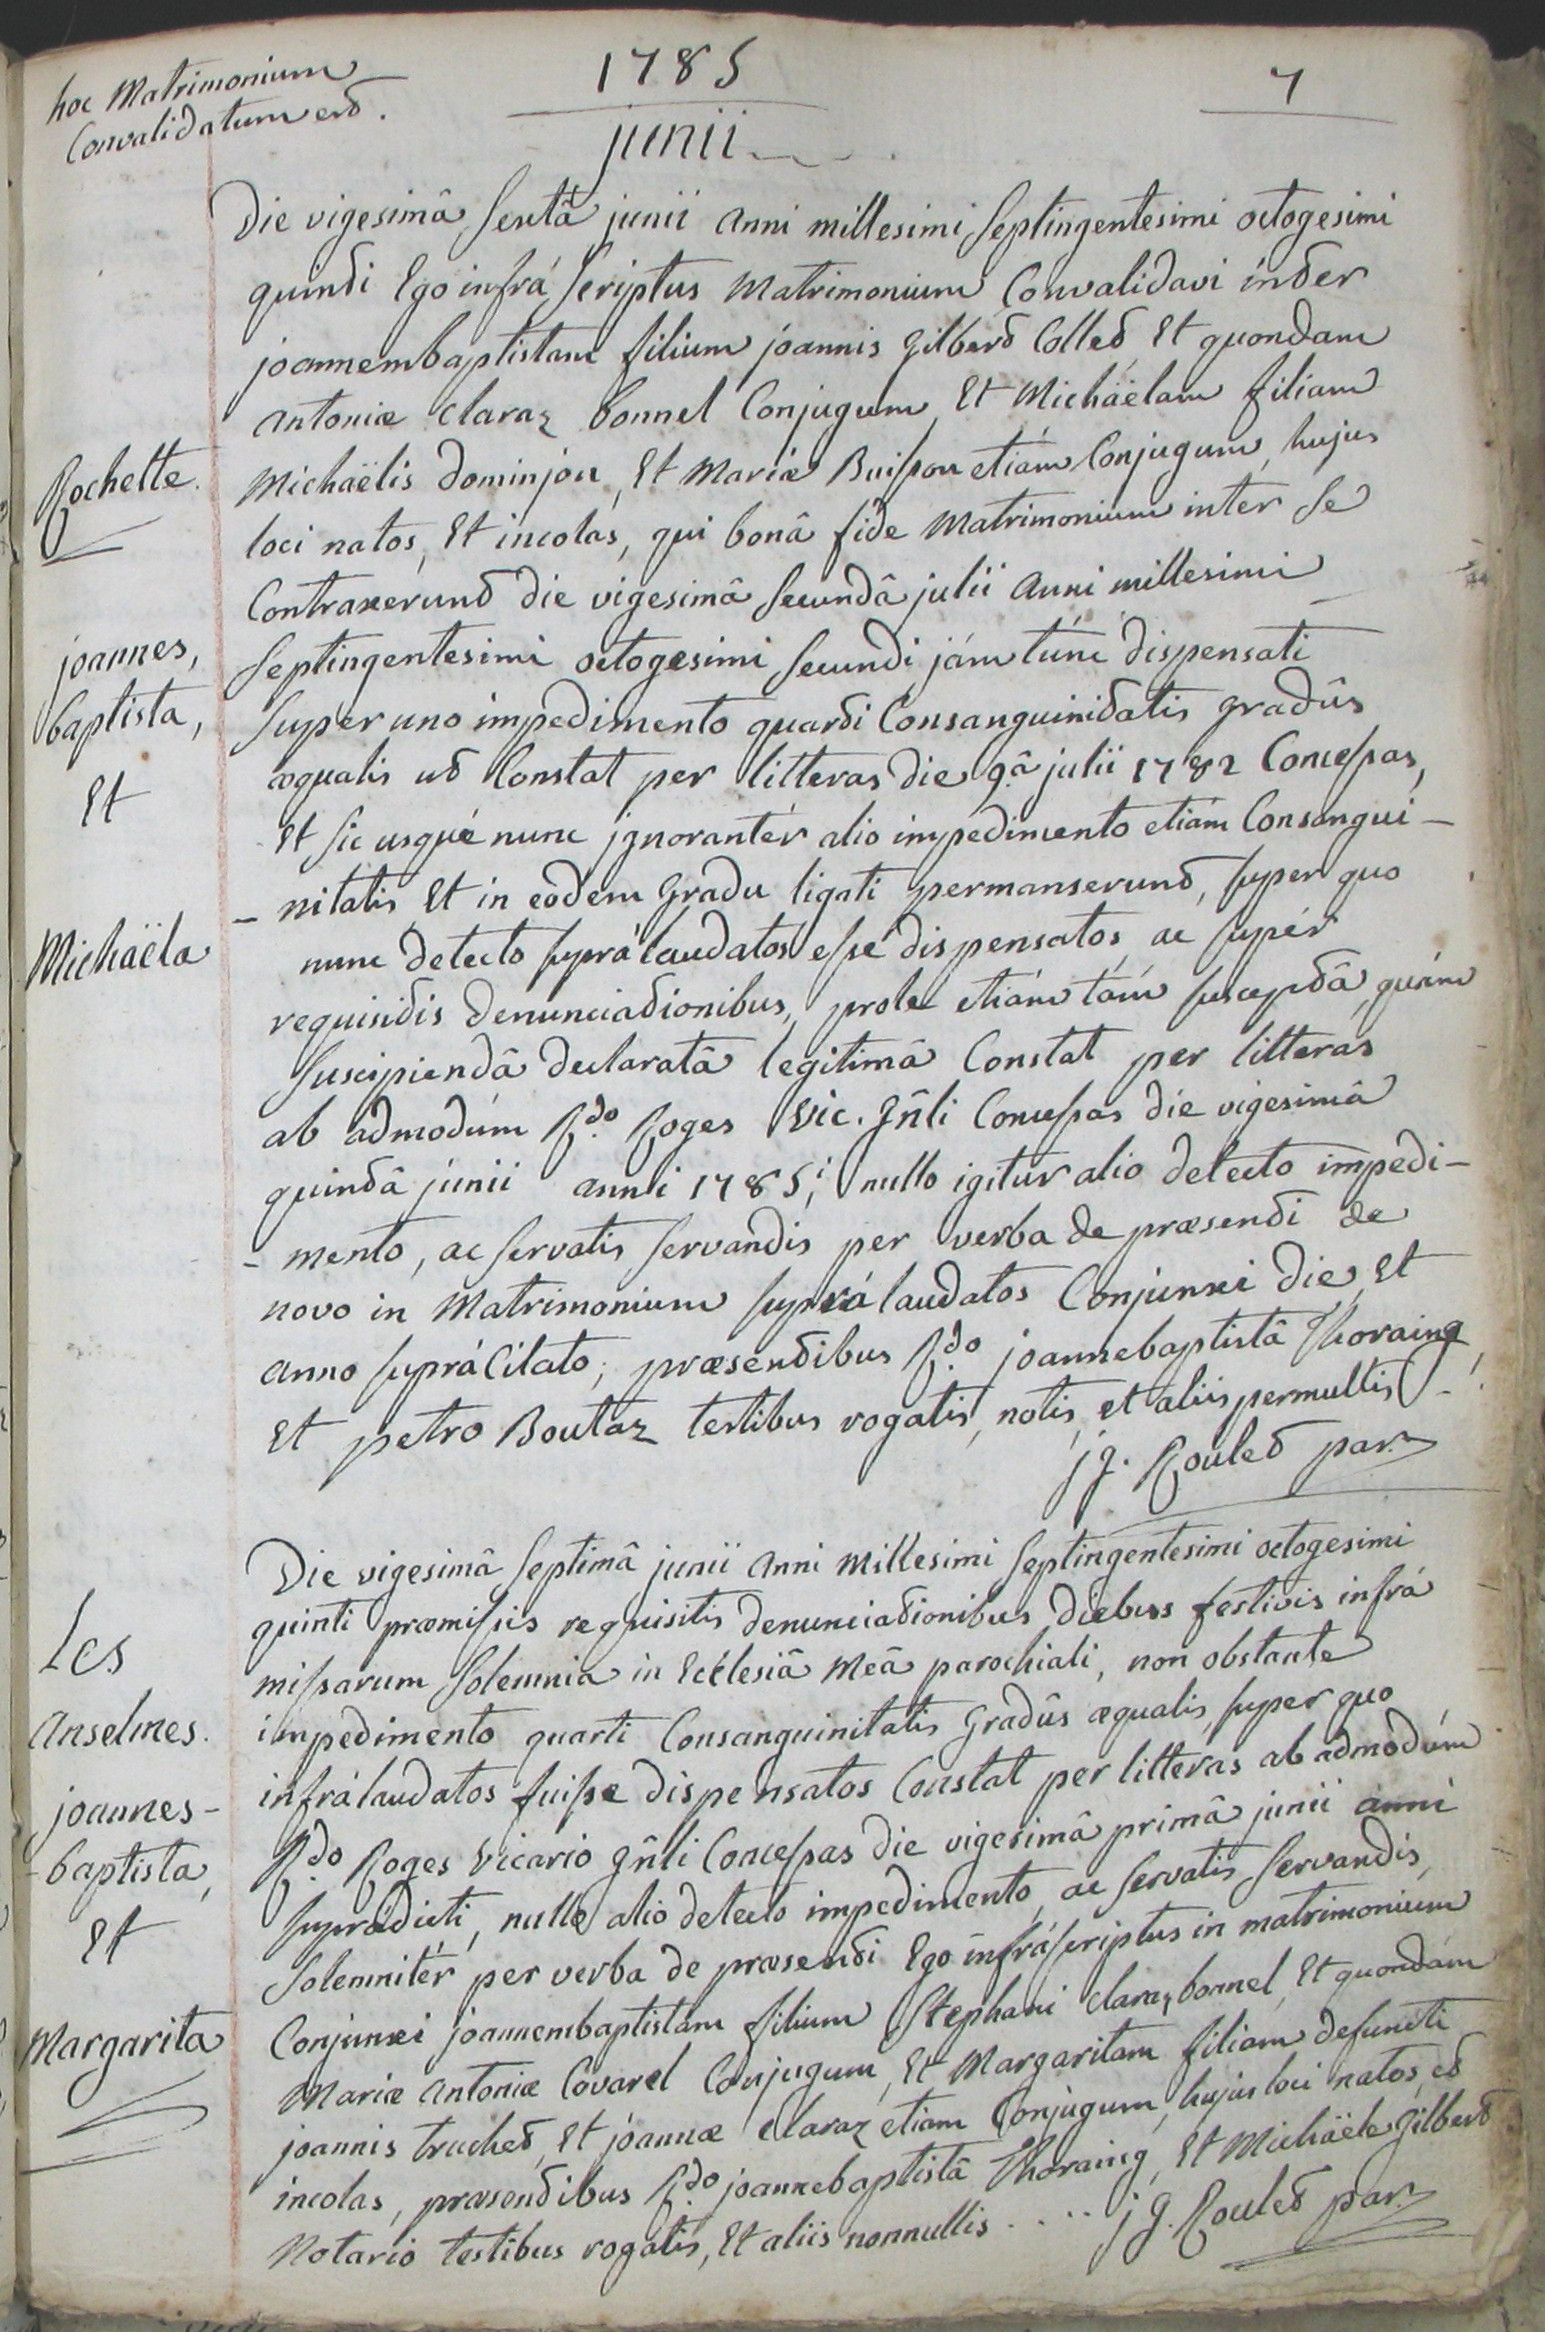 hoc Matrimonium
Convalidatum est.
1785
7
junii
Die vigesimâ Sextâ junii anni millesimi Septingentesimi octogesimi
quinti Ego infrá Scriptus Matrimonium Convalidavi inter
joannembaptistam filium joannis Gilbert Collet, Et quondam
antoniæ Claraz bonnel Conjugum, Et Michäelam filiam
Rochette.
Michaëlis dominjon, Et Mariæ Buisson etiám Conjugum, hujus
loci natos, Et incolas, qui bonâ fide Matrimonium inter Se
Contraxerunt die vigesimâ Secundâ julii anni millesimi
joannes,
Septingentesimi octogesimi Secundi jám túnc dispensati
baptista,
Super uno impedimento quarti Consanguinitatis gradûs
Et
æqualis ut Constat per litteras die 9.â julii 1782 Concessas,
Et Sic usqué nunc jgnorantér alio impedimento etiám Consangui-
- nitatis Et in eodem Gradu ligati permanserunt, super quo
Michaëla
nunc detecto suprá laudatos esse dispensatos, ac supér
requisitis denunciationibus, prole etiám tám susceptâ, quám
Suscipiendâ declaratâ legitimâ Constat per litteras
ab admodúm R.do Roges Vic. Gñli Concessas die vigesimâ
quintâ junii anni 1785.i, nullo igitur alio detecto impedi-
- mento, ac servatis servandis per verba de præsenti de
novo in Matrimonium suprá laudatos Conjunxi die, Et
anno suprá Citato; præsentibus R.do joannebaptistâ Thoraing,
Et petro Boutaz testibus rogatis, notis, et aliis permultis -
j g. Roulet par.
Die vigesimâ Septimâ junii anni Millesimi Septingentesimi octogesimi
quinti præmissis requisitis denunciationibus diebus festivis infrá
Les
missarum Solemnia in Ecclesiâ Meâ parochiali, non obstante
Anselmes.
impedimento quarti Consanguinitatis Gradûs æqualis, super quo
infrá laudatos fuisse dispensatos Constat per litteras ab admodúm
joannes-
R.do Roges Vicario gñli Concessas die vigesimâ primâ junii anni
- baptista,
suprádicti, nullo alio detecto impedimento, ac servatis servandis,
Et
Solemnitér per verba de præsenti Ego infráscriptus in matrimonium
Conjunxi joannembaptistam filium Stephani claraz bonnel, Et quondám
Margarita
Mariæ Antoniæ Covarel Conjugum, Et Margaritam filiam defuncti
joannis truchet, Et joannæ Claraz etiam Conjugum, hujus loci natos, et
incolas, præsentibus R.do joannebaptistâ Thoraing, Et Michäele Gilbert
Notario testibus rogatis, Et aliis nonnullis .... j g. Roulet par.